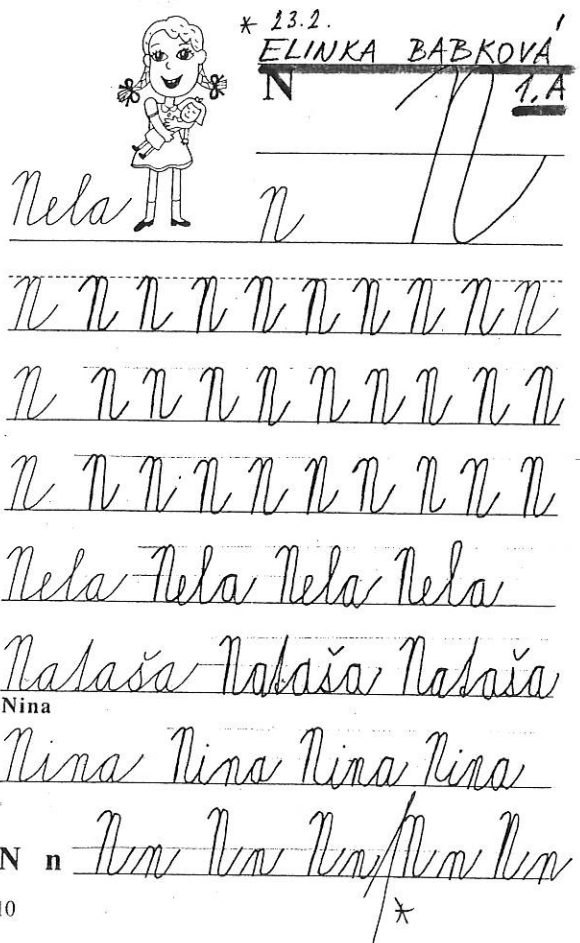 * 23.2.
ELINKA BABKOVÁ
N 1.A
Nela N N
N N N N N N N N N N
N N N N N N N N N N
N N N N N N N N N N
Nela Nela Nela Nela
Nataša Nataša Nataša
Nina
Nina Nina Nina Nina
N n Nn Nn Nn Nn Nn
10 *